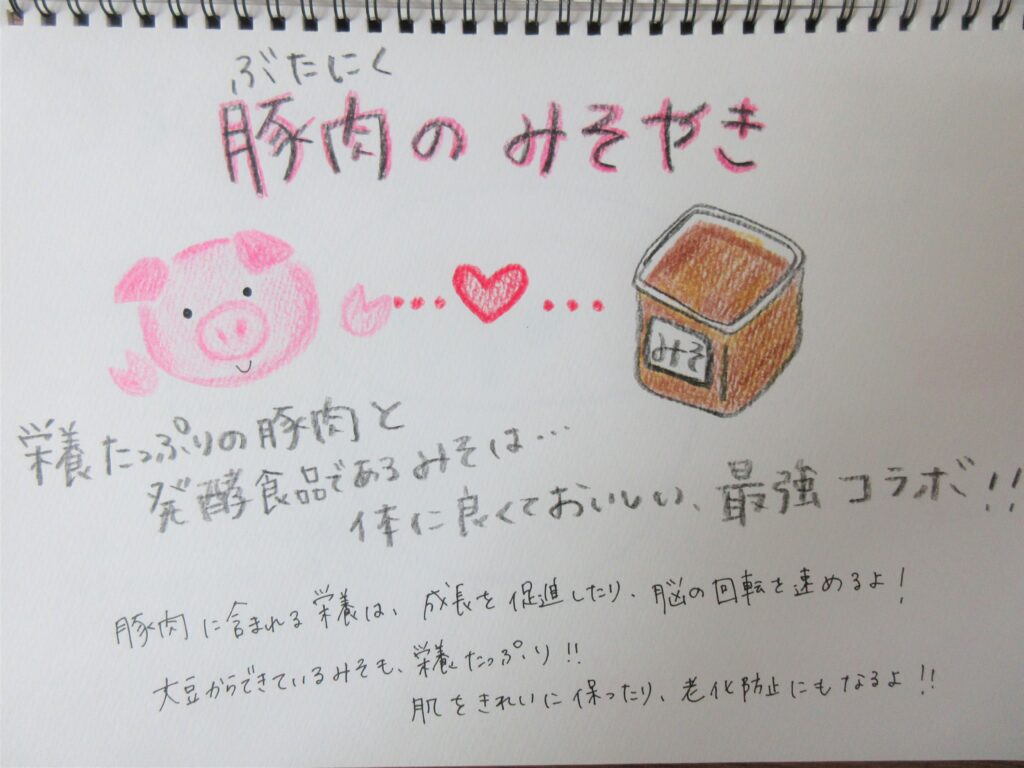 ぶたにく
豚肉のみそやき
みそ
栄養たっぷりの豚肉と
発酵食品であるみそは…
体に良くておいしい、最強コラボ!!
豚肉に含まれる栄養は、成長を促進したり、脳の回転を速めるよ!
大豆からできているみそも、栄養たっぷり!!
肌をきれいに保ったり、老化防止にもなるよ!!